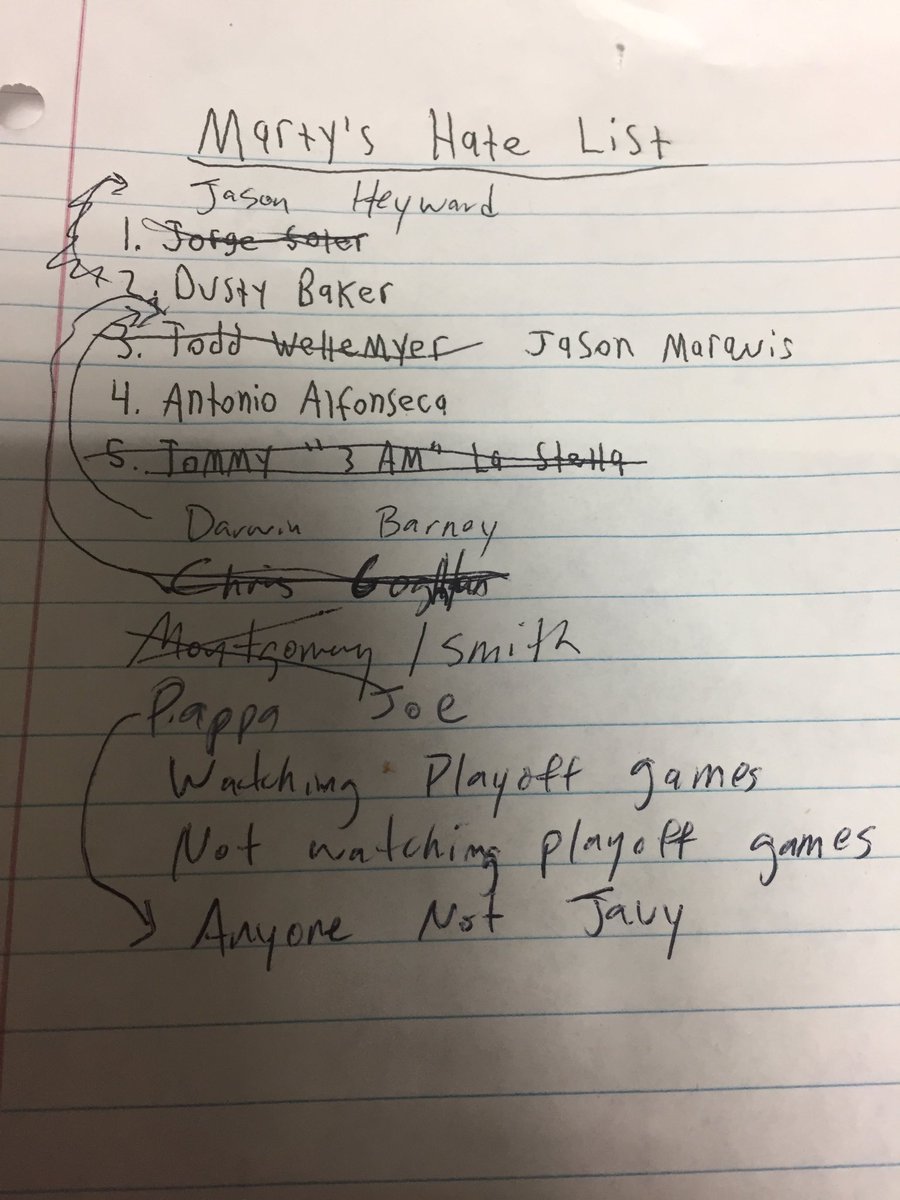 Marty's Hate List
Jason Heyward
1. Jorge Soler
2. Dusty Baker
3. Todd Wellemyer Jason Marquis
4. Antonio Alfonseca
5. Tommy "3 AM" La Stella
Darwin Barney
Chris Coghlan
Montgomery / Smith
Pappa Joe
Watching Playoff games
Not watching playoff games
Anyone Not Javy